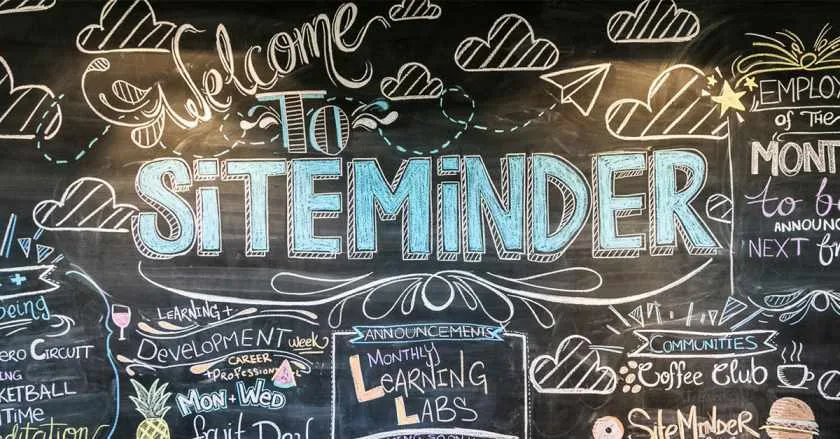 Welcome
To
SiTEMiNDER
EMPLO
OF THE
MONT
to b
ANNOUNC
NEXT fr
eing
ERO CiRCUiT
ING
KETBALL
TIME
editation
LEARNiNG +
DEVELOPMENT week
CAREER
+ PROFESSION
MON + WED
fruit Del
ANNOUNCEMENTS
MONTHLY
LEARNiNG
LABS
COMMUNiTiES
Coffee Club
SiteMiNDER